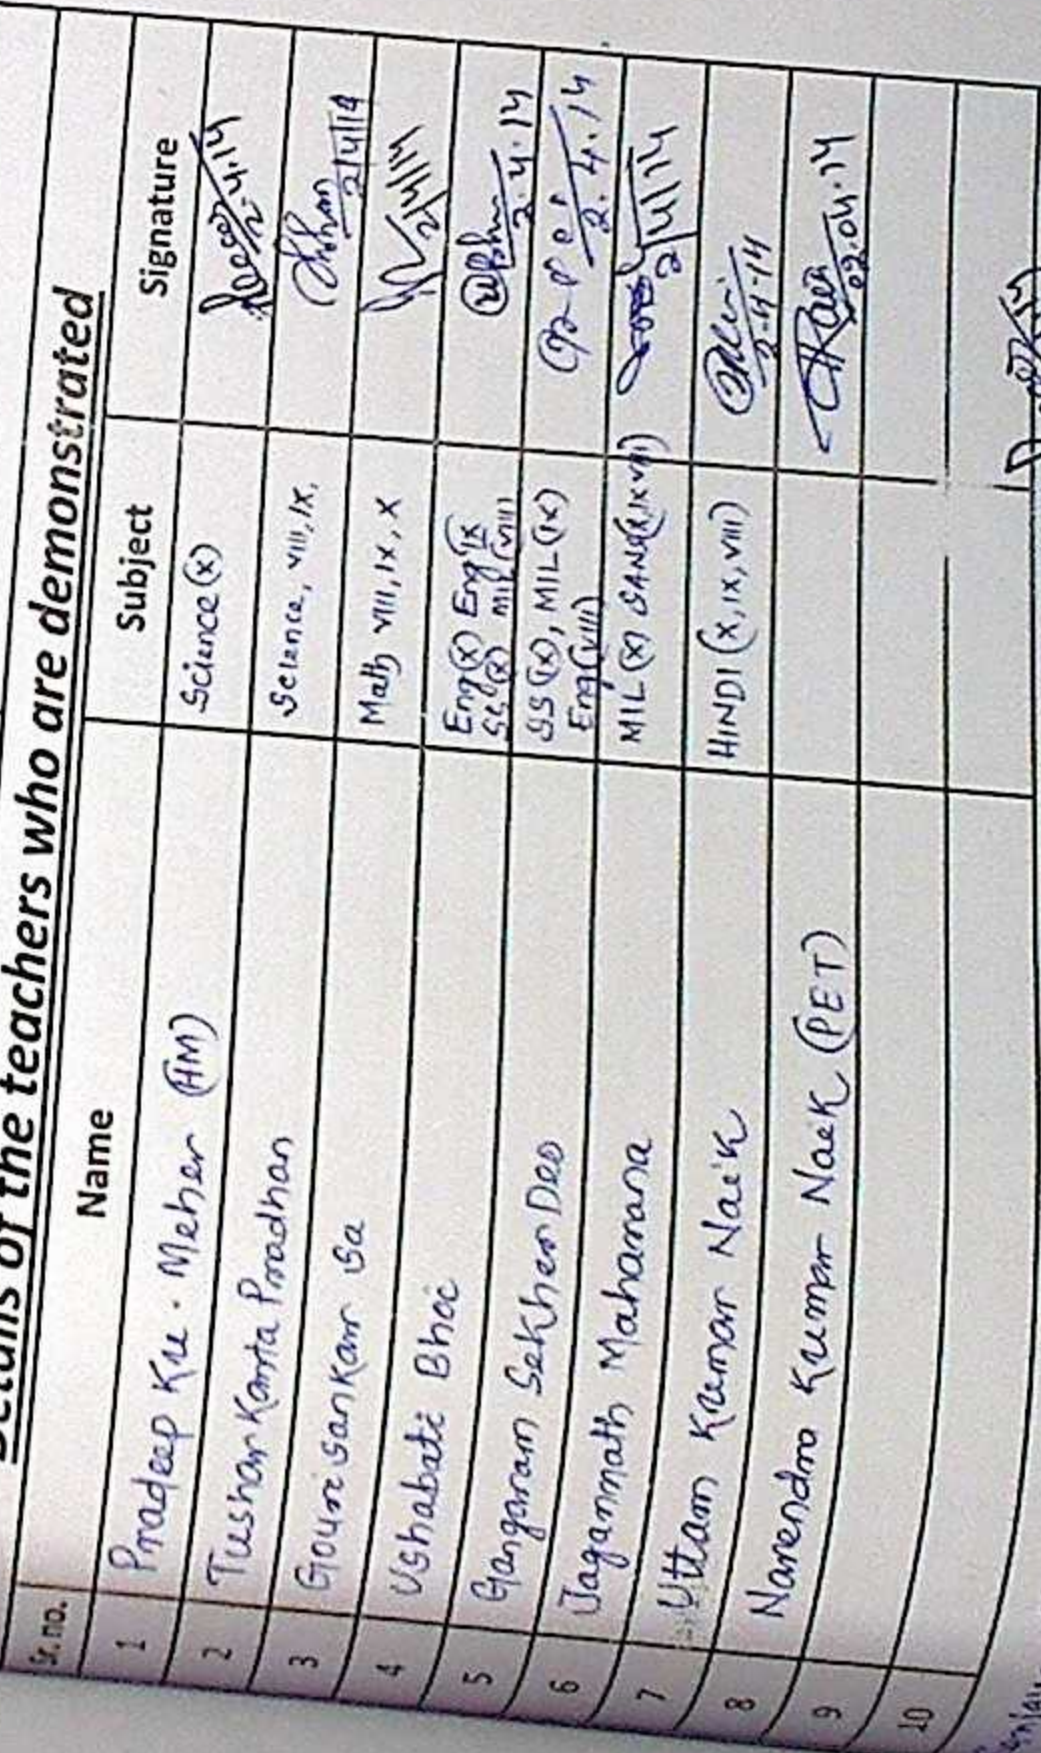 of the teachers who are demonstrated
Sr. no. Name Subject Signature
1 Pradeep Ku. Meher (HM) Science (X) 2.4.14
2 Tushar Kanta Pradhan Science, VIII, IX, 2/4/14
3 Gouri Sankar Sa Math VIII, IX, X 2/4/14
4 Ushabati Bhoi Eng (X) Eng (IX
SS (X) MIL (VIII) 2.4.14
5 Gangaram Sekher Deo SS (IX), MIL (IX)
Eng (VIII) 2.4.14
6 Jagannath Maharana MIL (X) SANS (X, IX VIII) 2/4/14
7 Uttam Kumar Naik HINDI (X, IX, VIII) 2-4-14
8 Narendra Kumar Naik (PET) 02.04.14
9
10